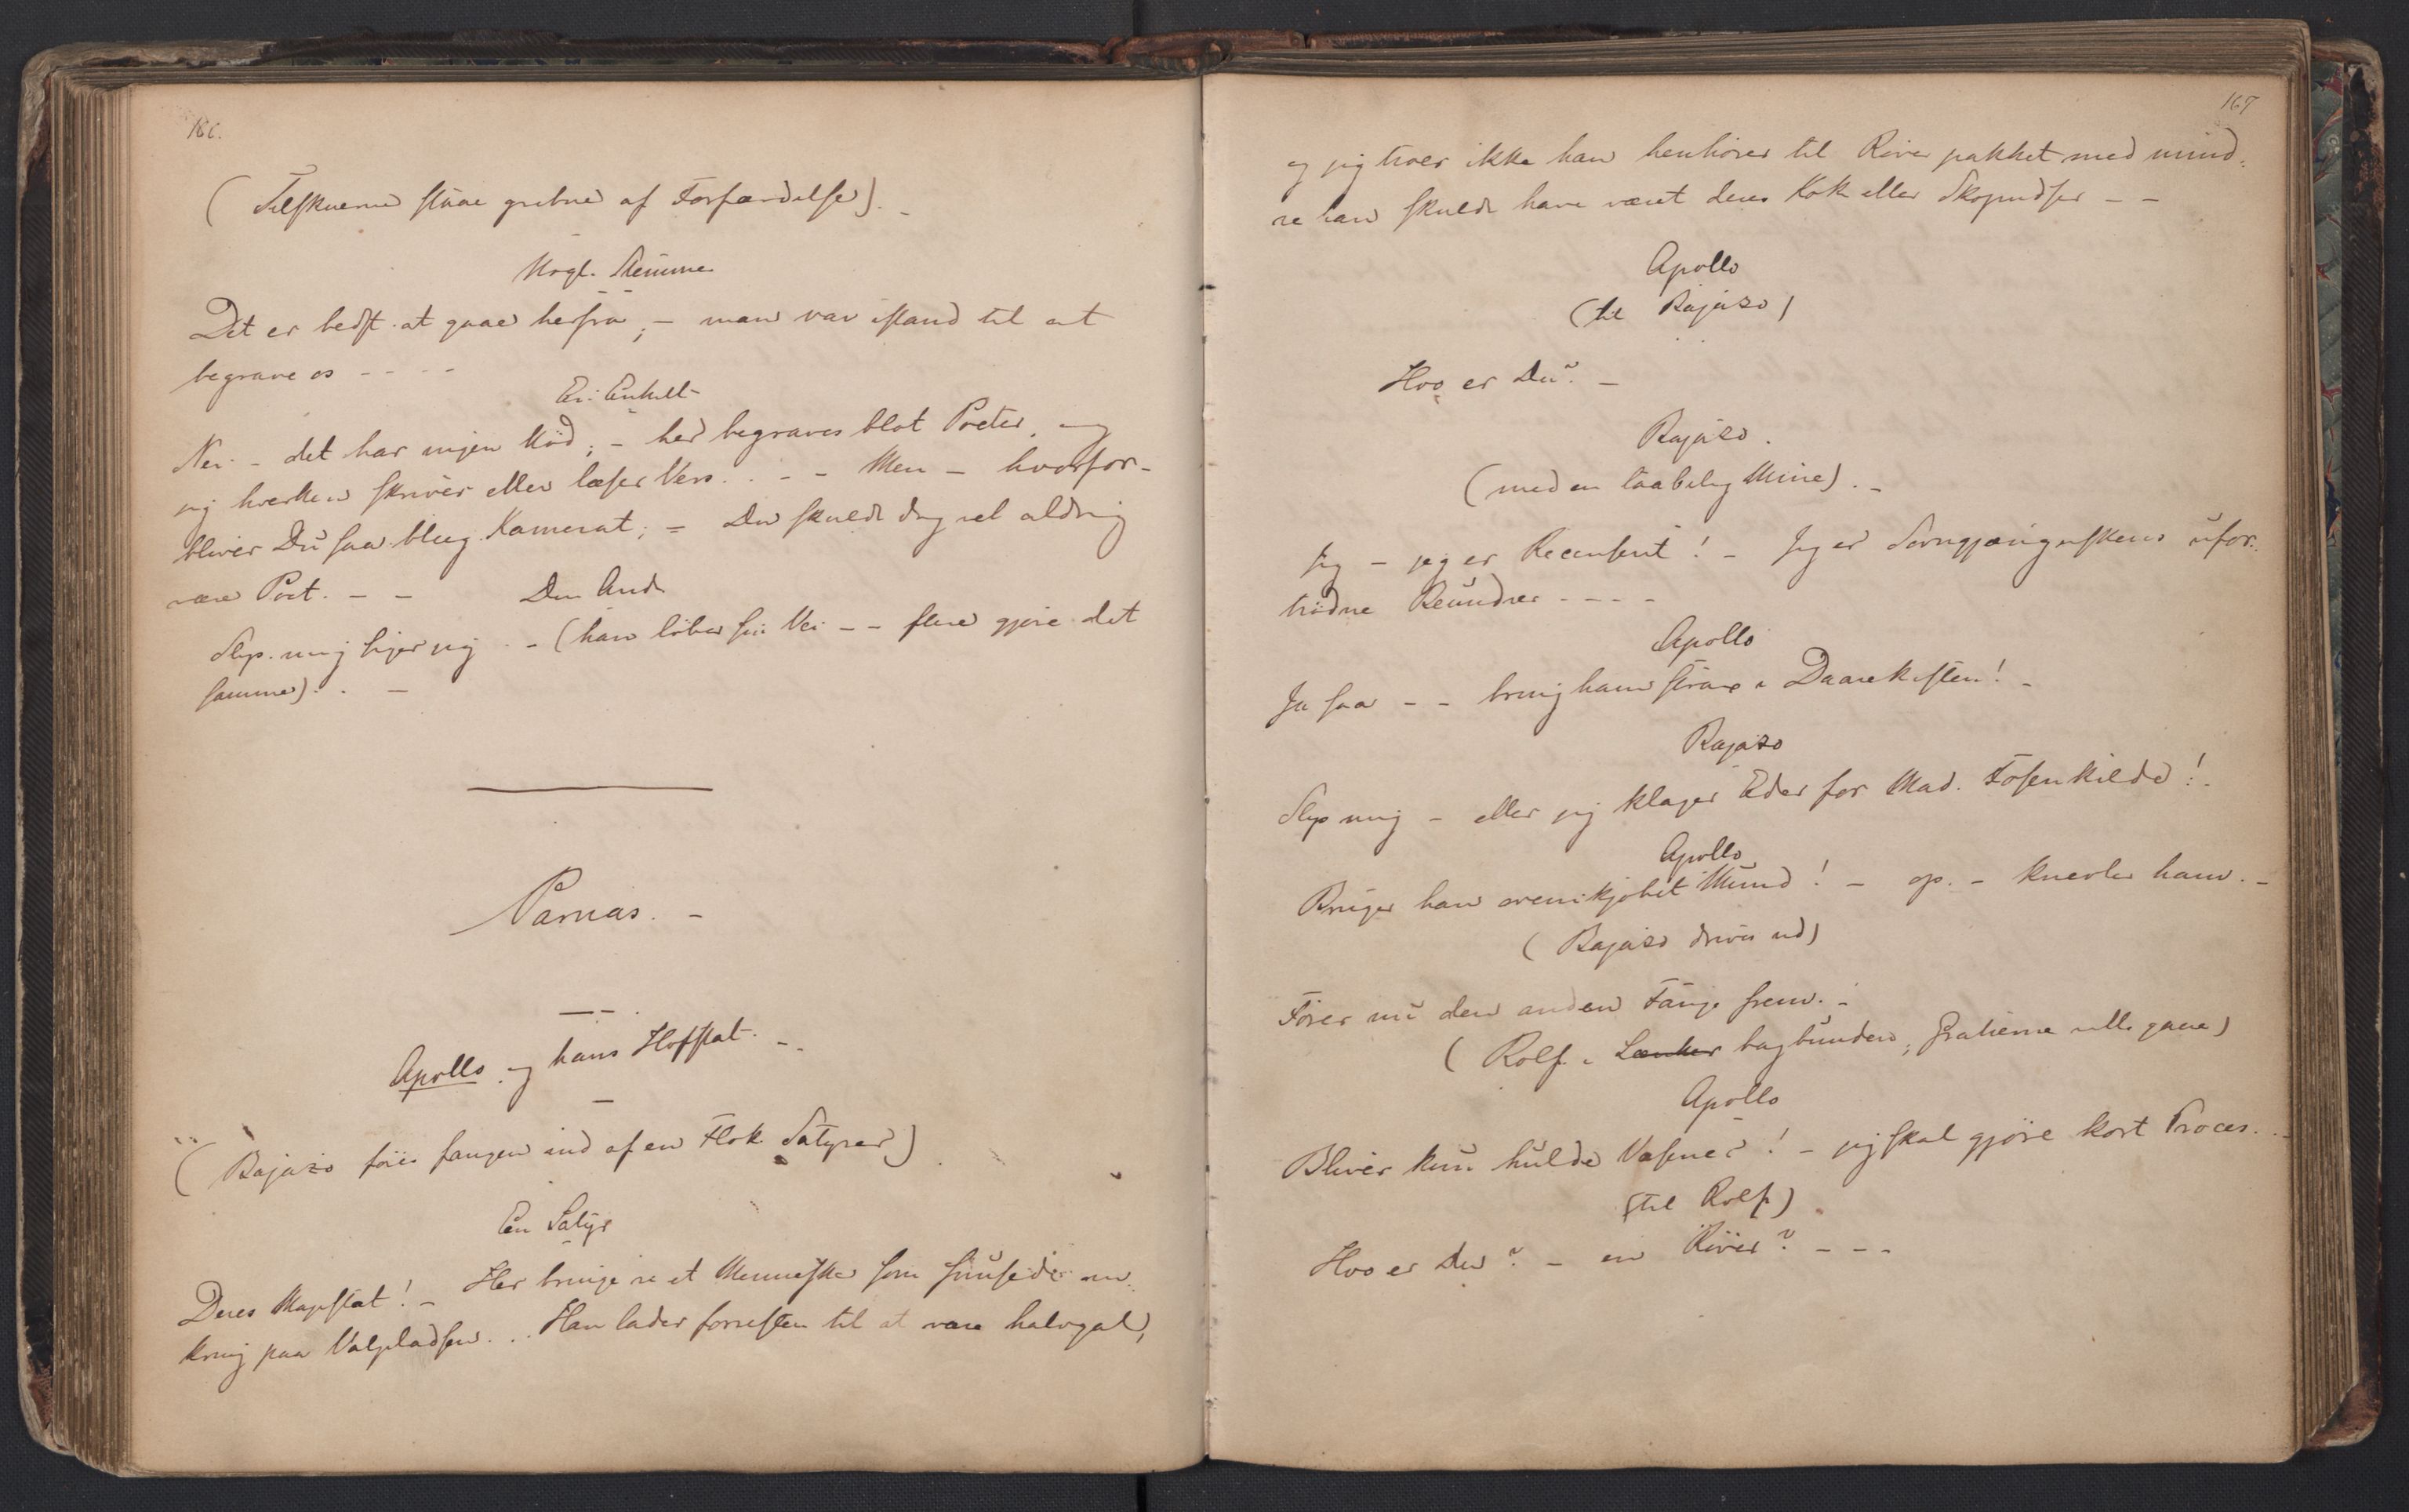 166.
(Tilskuerne staae grebne af Forfærdelse). –
Nogle Stemmer
Det er bedst at gaae herfra; – man var istand til at
begrave os – – – –
En Enkelt
Nei – det har ingen Nød; – her begraves blot Poeter, og
jeg hverken skriver eller læser Vers. . – – Men – hvorfor
bliver Du saa bleg Kamerat; – Du skulde dog vel aldrig
være Poet. – –
Den Anden
Slip mig siger jeg – – (han løber sin Vei – – flere gjøre det
samme). . –
Parnas. –
Apollo og hans Hofstat. – –
(Bajazo føres fangen ind af en Flok Satyrer)
En Satyr
Deres Majestæt! – Her bringe vi et Menneske som snusede om-
kring paa Valpladsen. . . Han lader forresten til at være halvgal,
167
og jeg troer ikke han henhører til Røverpakket med mind-
re han skulde have været deres Kok eller Skopudser – –
Apollo
(til Bajazo)
Hvo er Du? –
Bajazo.
(med en taabelig Mine). –
Jeg – jeg er Recensent! – Jeg er Søvngjængerskens ufor-
trødne Beundrer – – – –
Apollo
Ja saa – – bring ham strax i Daarekisten! –
Bajazo
Slip mig – eller jeg klager Eder for Mad. Fosenkilde!
Apollo
Bruger han ovenikjøbet Mund! – op. – knevler ham. –
(Bajazo drives ud)
Fører nu den anden Fange frem. –
(Rolf i Lænker bagbunden; Gratierne ville gaae)
Apollo
Bliver kun hulde Væsner! – jeg skal gjøre kort Proces. . –
(til Rolf)
Hvo er Du? – en Røver? – – –